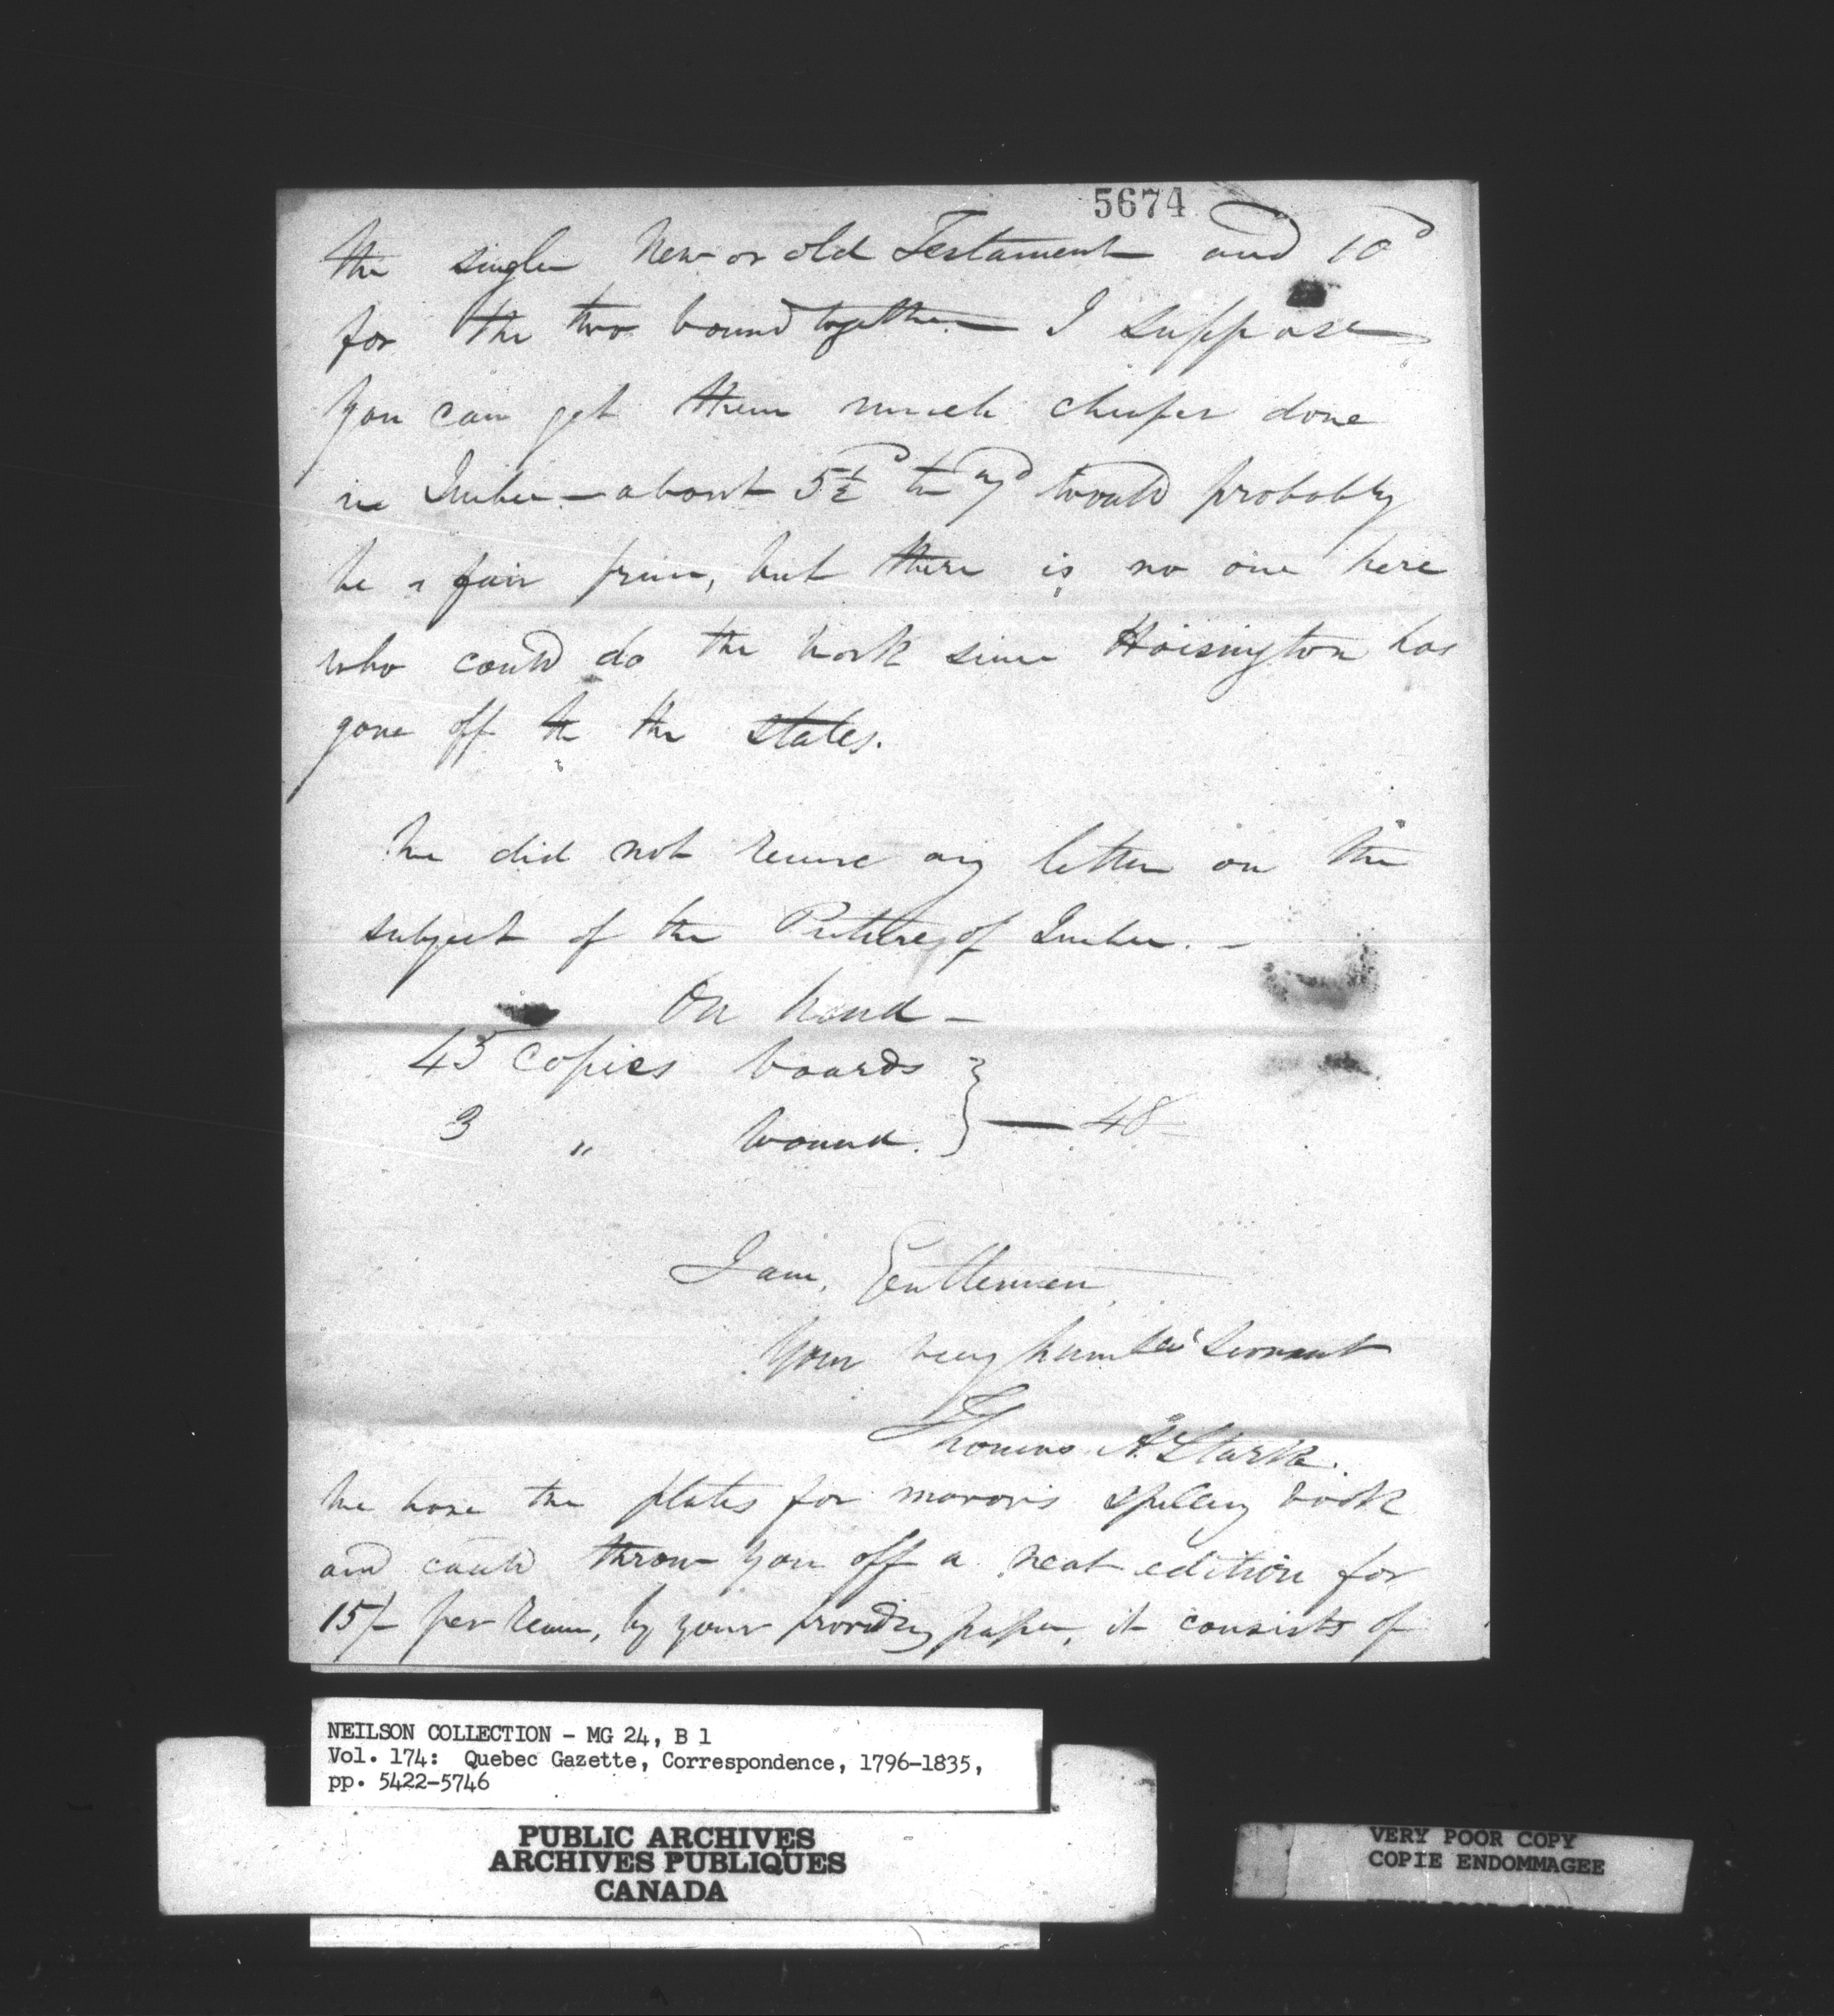 5674
the single New or old Testament and 10d
for the two bound together I suppose
you can get them much cheaper done
in Quebec - about 5½d to 7d would probably
be a fair price, but there is no one here
who could do the work since Hoisington has
gone off to the States.
We did not receive any letter on the
subject of the Picture of Quebec. -
On hand -
45 copies boards
3 " bound. } — 48
I am, Gentlemen
Your very humble Servant
Thomas A. Starke.
We have the plates for mavor's spelling book
and could throw you off a neat edition for
15/- per ream, by your providing paper, it consists of
NEILSON COLLECTION - MG 24, B 1
Vol. 174: Quebec Gazette, Correspondence, 1796-1835,
pp. 5422-5746
PUBLIC ARCHIVES
ARCHIVES PUBLIQUES
CANADA
VERY POOR COPY
COPIE ENDOMMAGEE